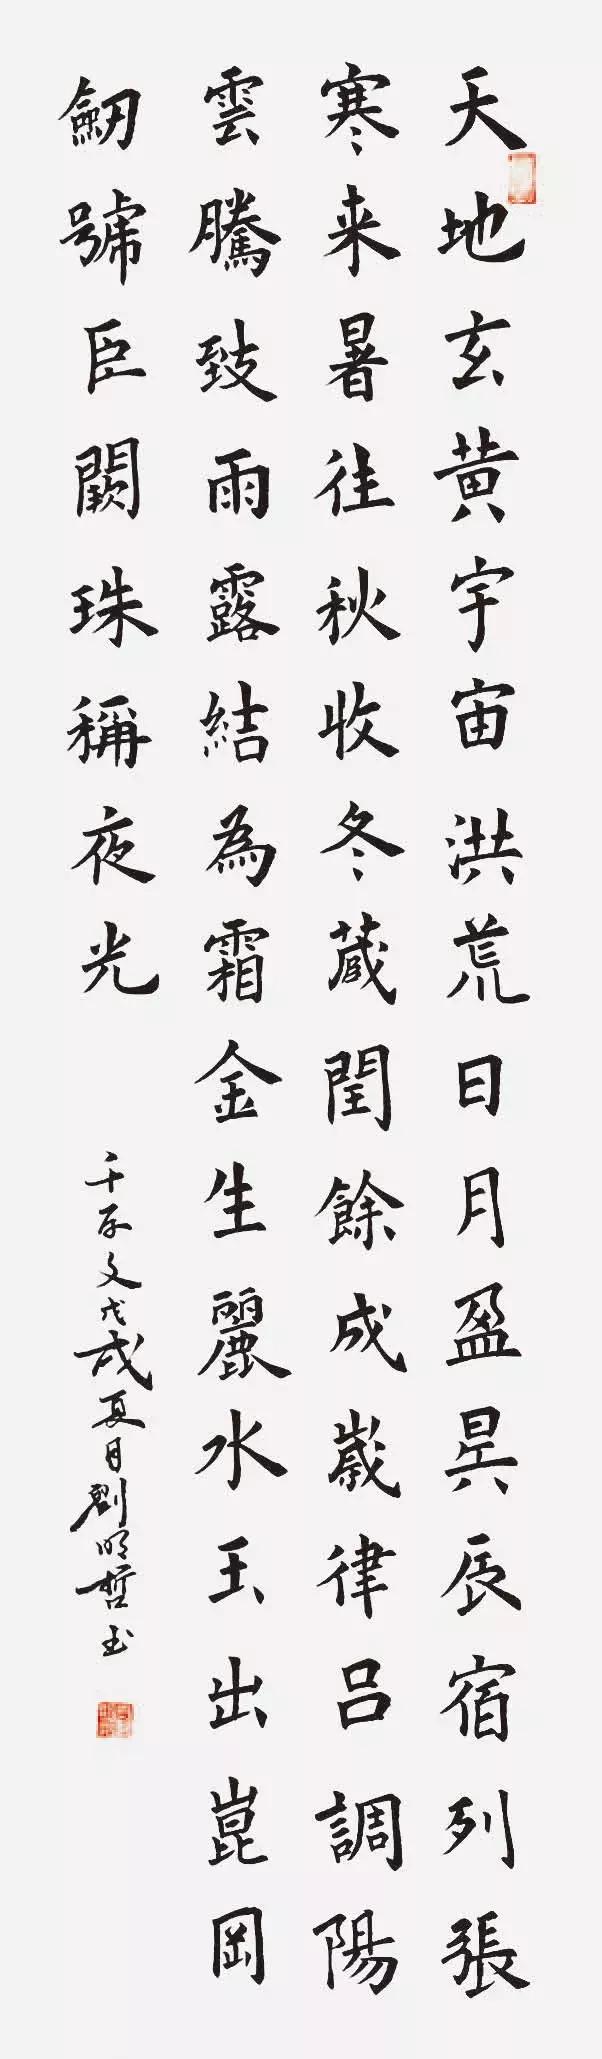 天地玄黄宇宙洪荒日月盈昃辰宿列張
寒来暑往秋收冬蔵閏餘成歲律吕調陽
雲騰致雨露結為霜金生麗水玉出崑岡
劒號巨闕珠稱夜光
千字文戊戌夏月劉明哲书